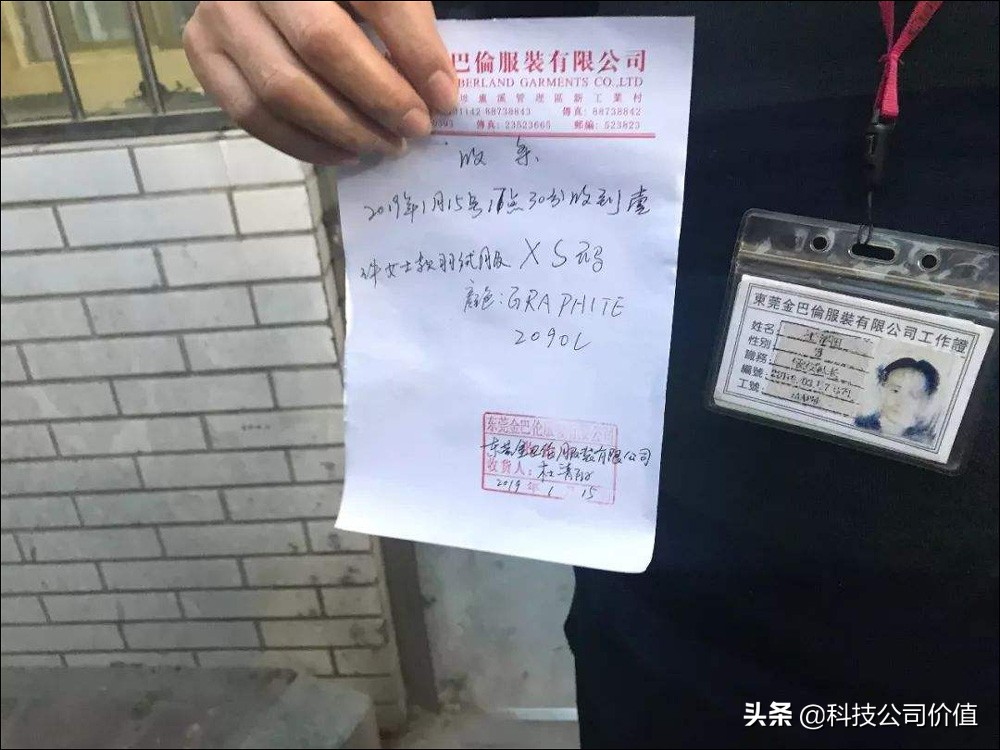 巴倫服裝有限公司
BERLAND GARMENTS CO.,LTD
盧溪管理區新工業村
01142-88738843 傳真: 88738842
傳真: 23523665 郵編: 523823
收条
2019年1月15号 30分收到壹
件女士款羽绒服 XS码
颜色:GRAPHITE
2090L
东莞金巴伦服装有限公司
东莞金巴伦服装有限公司
收货人:杜清
2019年1 15
東莞金巴倫服裝有限公司工作證
姓名:
性別:
職務:
編號:
工號:
头条 @科技公司价值